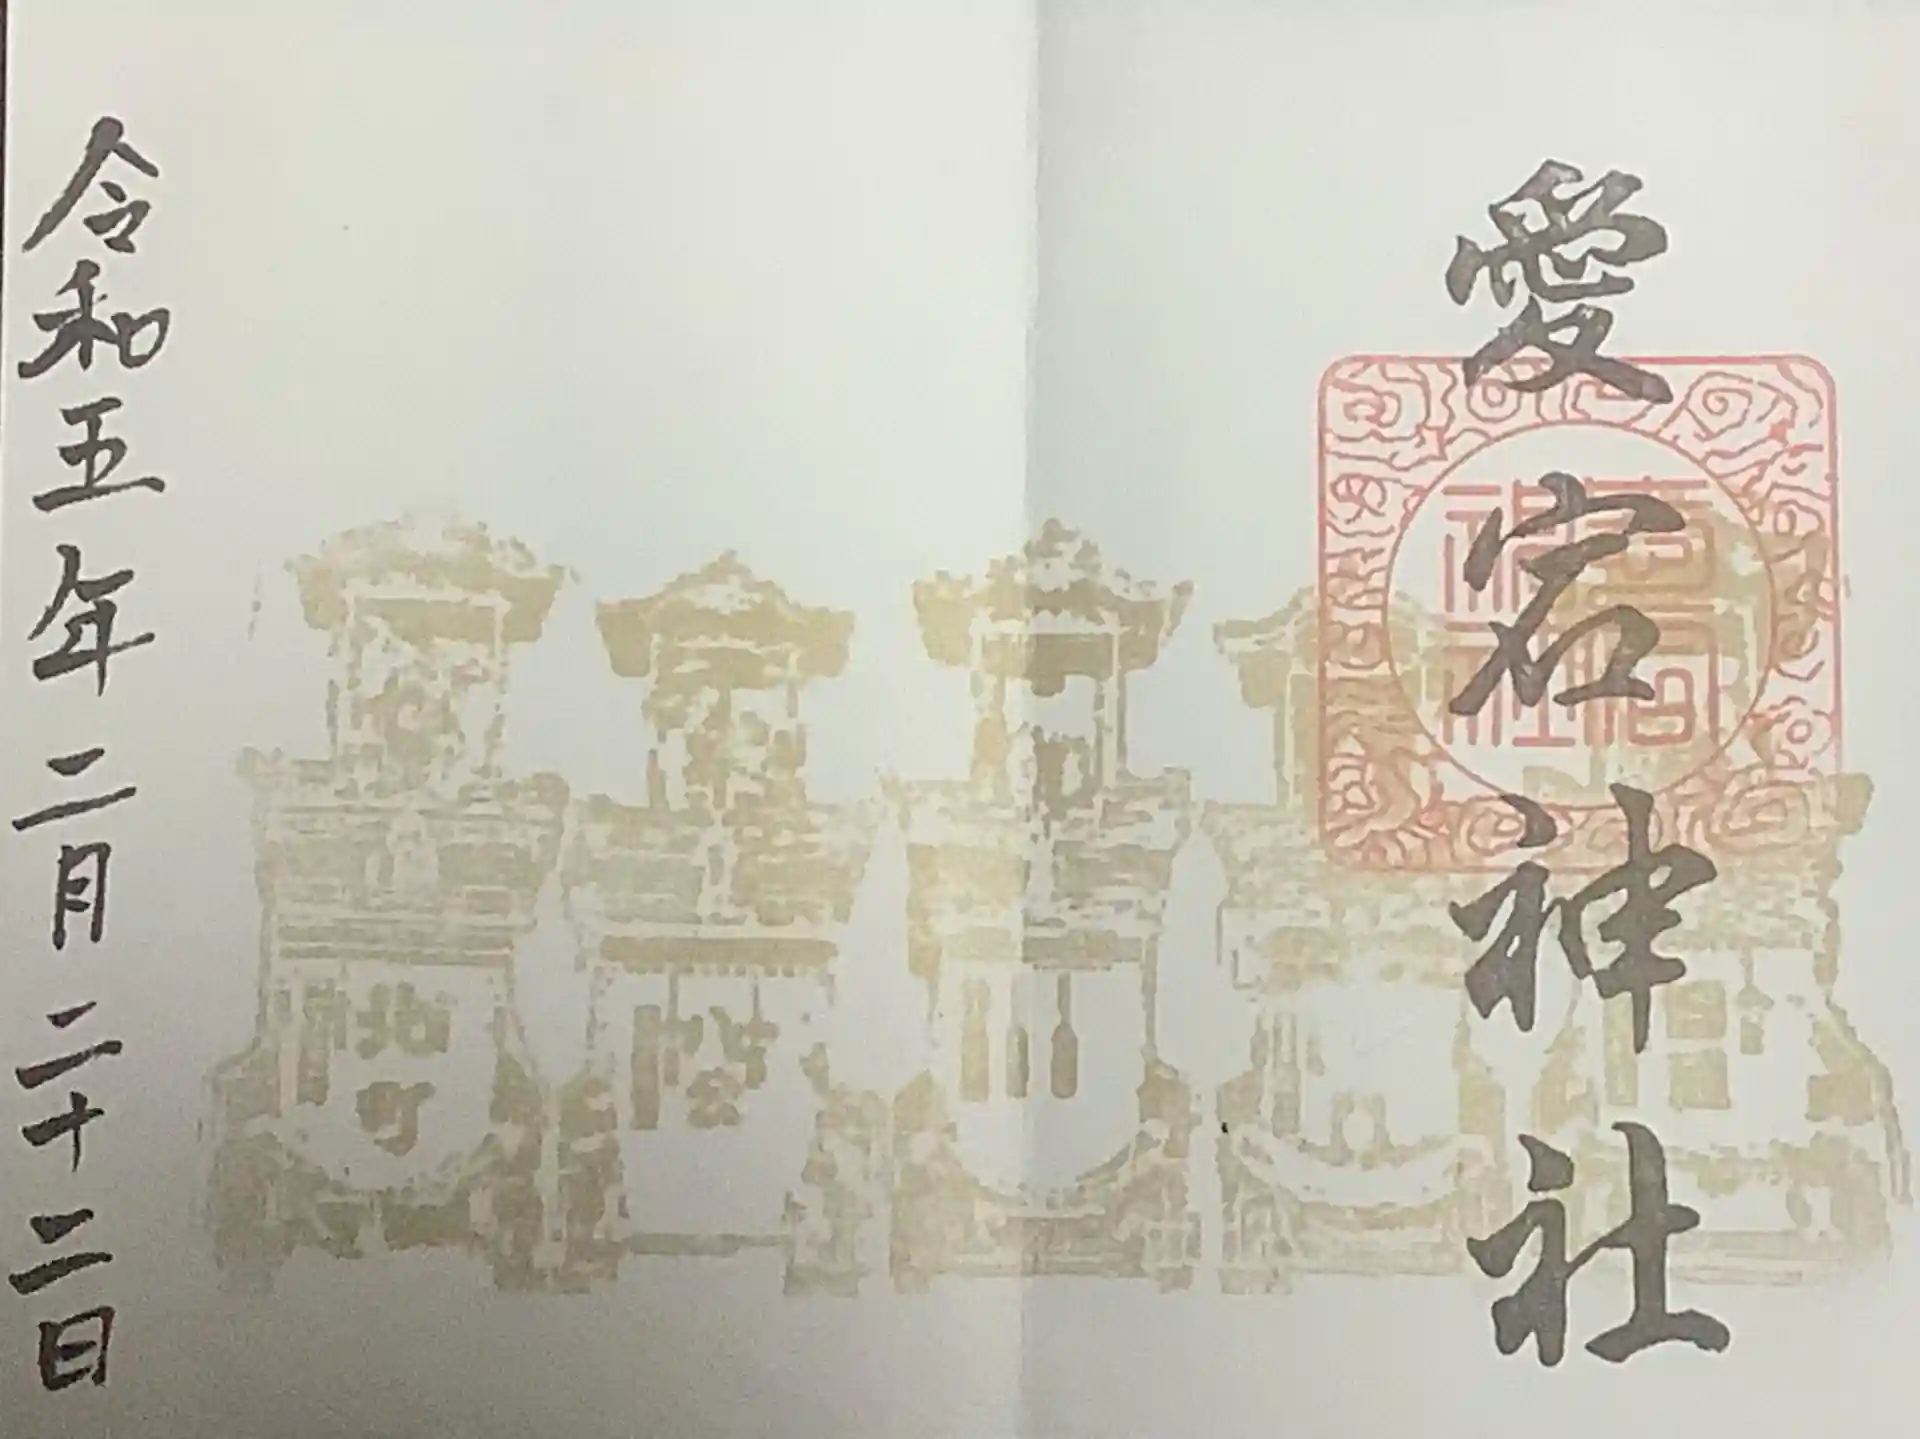 愛宕神社
愛宕
神社
北町
令和五年二月二十二日